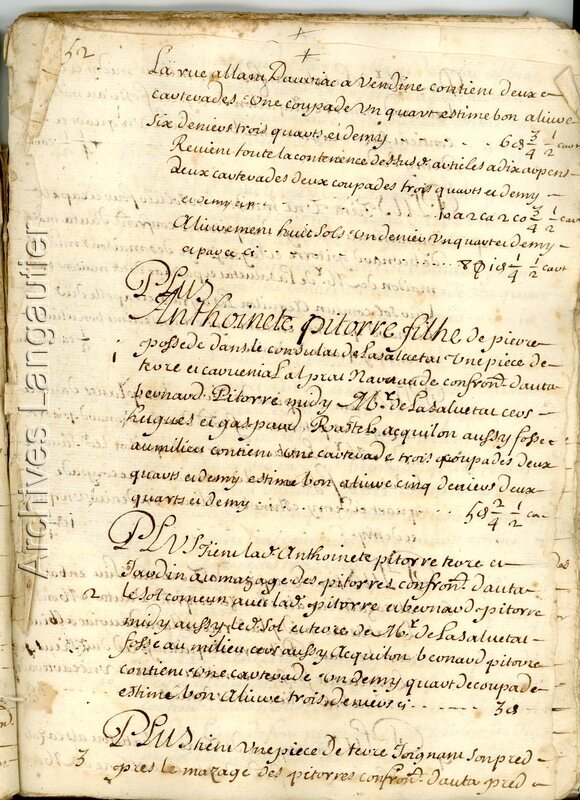 52
La rue allant Dauriac a Vendine contient deux c
carterades une coupade un quart estime bon aliure
six deniers trois quarts et demy . . 6 d 3/4 1/2 cart
Revient toute la contenence dessus d. articles a dix arpens
deux carterades deux coupades trois quarts et demy
et demy 10 a 2 ca 2 co 3/4 1/2 cart
Aliurement huit sols un denier un quart et demy
et paye cy . . 8 s 1 d 1/4 1/2 cart
PLus
Anthoinete pitorre filhe de pierre
1 possede dans le consulat de Lasalvetat une piece de
terre et al prat Navraude confront. d'auta
bernard Pitorre midy Mr. de Lasalvetat cers
hugues et gaspard Rastels acquilon aussy fosse
au milieu contient une carterade trois coupades deux
quarts et demy estime bon aliure cinq deniers deux
quarts et demy . . . 5 d 2/4 1/2 car
PLUS tient lad. Anthoinete pitorre terre et
Jardin au mazage des pitorres confront. d'auta
2 le sol comeun avec lad. pitorre et bernard pitorre
midy aussy led. sol et terre de Mr. de Lasalvetat
fosse au milieu cers aussy Acquilon bernard pitorre
contient une carterade un demy quart de coupade
estime bon Aliure trois deniers cy . . . . . . 3 d
PLus tient une piece de terre Joignant son pred
3 pres le mazage des pitorres confront. d'auta pred
Archives Langautier